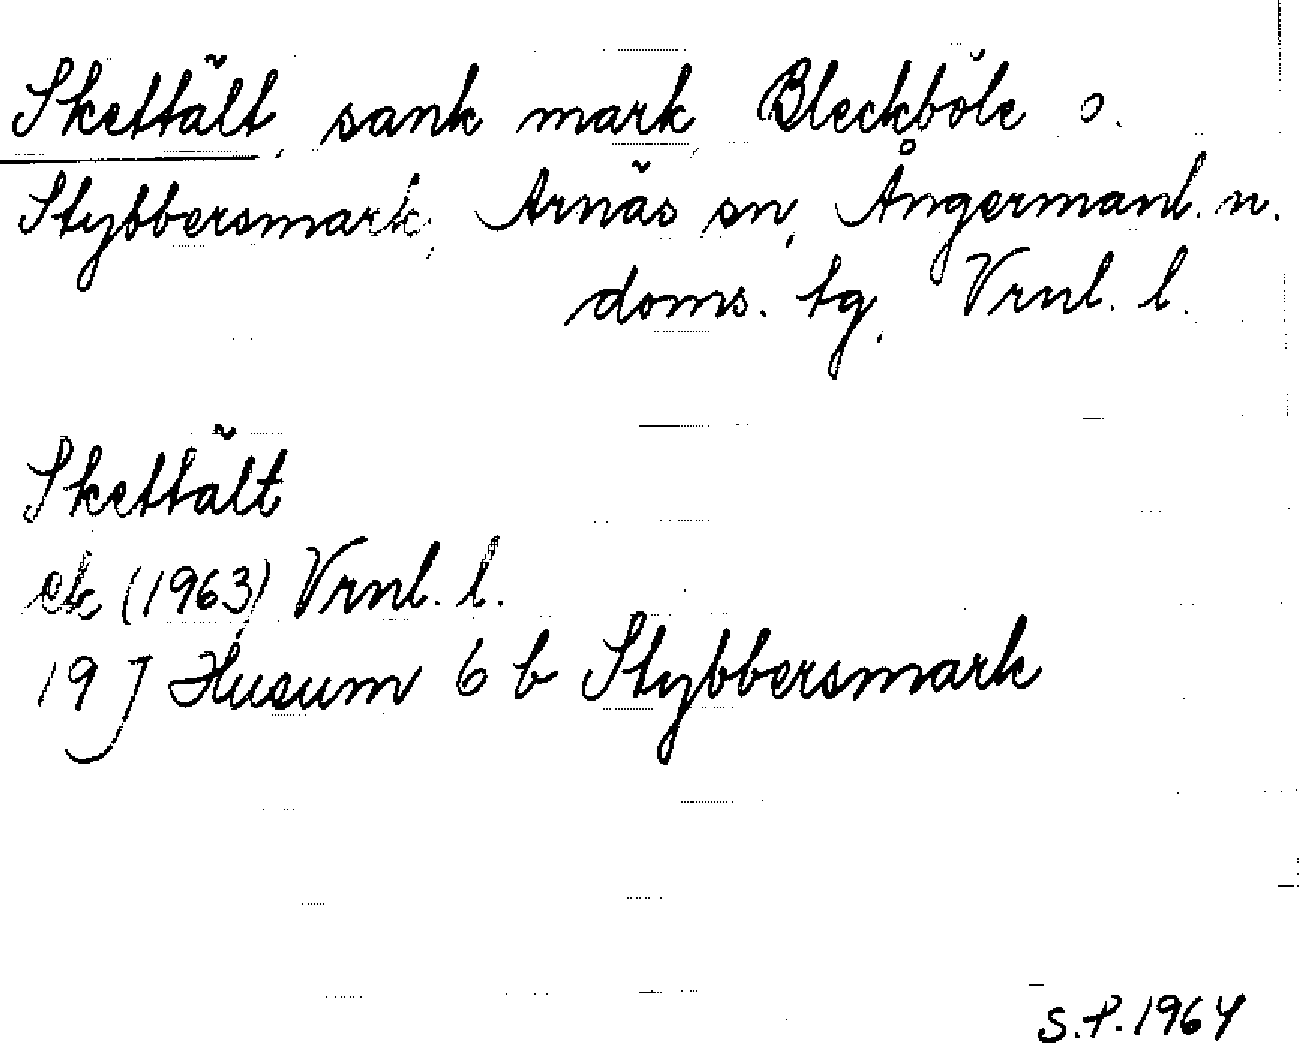 Skettält, sank mark, Bleckböle o.
Stybbersmark, Arnäs sn, Ångermanl. n.
doms. tg, Vrnl. l.
Skettält
ek (1963) Vrnl. l.
19 J Husum 6 b Stybbersmark
S.P. 1964